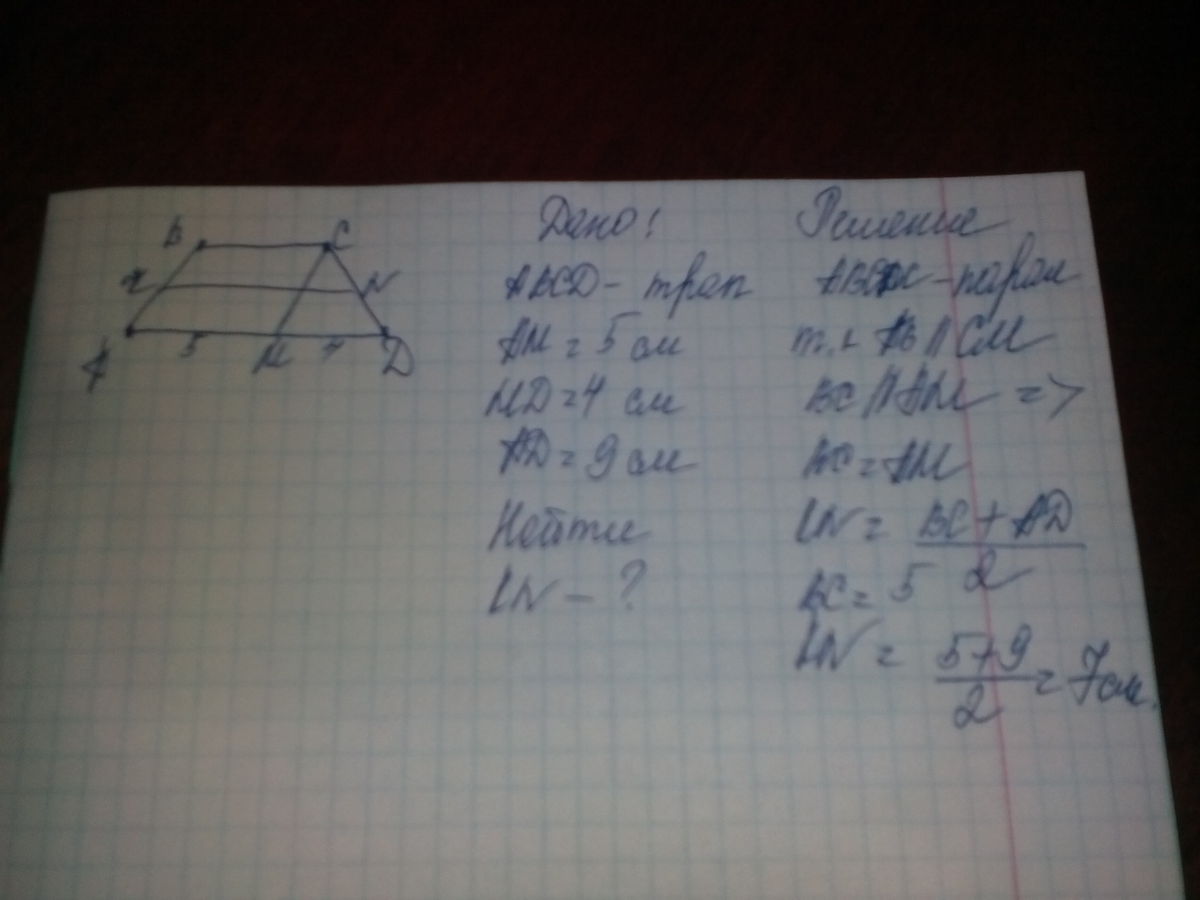 B C
N
A 5 M 4 D
Дано:
ABCD - трап
AM = 5 см
MD = 4 см
AD = 9 см
Найти
LN - ?
Решение
- парал
т.к AB || CM
BC || AM =>
BC = AM
LN = BC + AD
2
BC = 5
LN = 5+9
2
= 7 см.